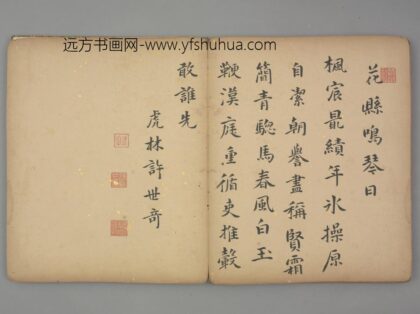 远方书画网-www.yfshuhua.com
花縣鳴琴日
楓宸最績年氷操原
自潔朝譽盡稱賢霜
簡青驄馬春風白玉
鞭漢庭重循吏推轂
敢誰先
虎林許世奇